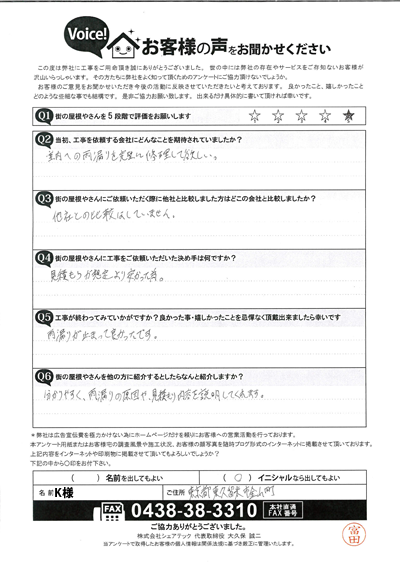 Voice!
お客様の声をお聞かせください
この度は弊社に工事をご用命頂き誠にありがとうございました。世の中には弊社の存在やサービスをご存知ないお客様が
沢山いらっしゃいます。その方たちに弊社をよく知って頂くためのアンケートにご協力頂けないでしょうか。
お客様のご意見をお聞かせいただき今後の活動に反映させていただきたいと考えております。良かったこと、嬉しかったこと
どのような些細な事でも結構です。是非ご協力お願い致します。出来るだけ具体的に書いて下されば幸いです。
Q1 街の屋根やさんを5段階で評価をお願いします ☆ ☆ ☆ ☆ ★
Q2 当初、工事を依頼する会社にどんなことを期待されていましたか?
室内への雨漏りを完全に修理して欲しい。
Q3 街の屋根やさんにご依頼いただく際に他社と比較しました方はどこの会社と比較しましたか?
他社との比較はしていません。
Q4 街の屋根やさんに工事をご依頼いただいた決め手は何ですか?
見積もりが想定より安かった為。
Q5 工事が終わってみていかがですか?良かった事・嬉しかったことを忌憚なく頂戴出来ましたら幸いです
雨漏りが止まって良かったです。
Q6 街の屋根やさんを他の方に紹介するとしたらなんと紹介しますか?
分かりやすく、雨漏りの原因や、見積もり内容を説明してくれます。
*弊社は広告宣伝費を極力かけない為にホームページだけを頼りにお客様への営業活動を行っております。
本アンケート用紙またはお客様宅の調査風景や施工状況、お客様の顔写真を随時ブログ形式のインターネットに掲載させて頂いております。
上記内容をインターネットや印刷物に掲載させて頂いてもよろしいでしょうか?
下記の中から〇印をお付下さい。
( ) 名前を出してもよい ( ○ ) イニシャルなら出してもよい
名前 K様 ご住所 東京都東久留米市金山町
FAX 0438-38-3310 本社直通 FAX番号
ご協力ありがとうございました。
株式会社シェアテック 代表取締役 大久保 誠二
当アンケートで取得したお客様の個人情報は関係法規に基づき厳正に管理いたします。
富田